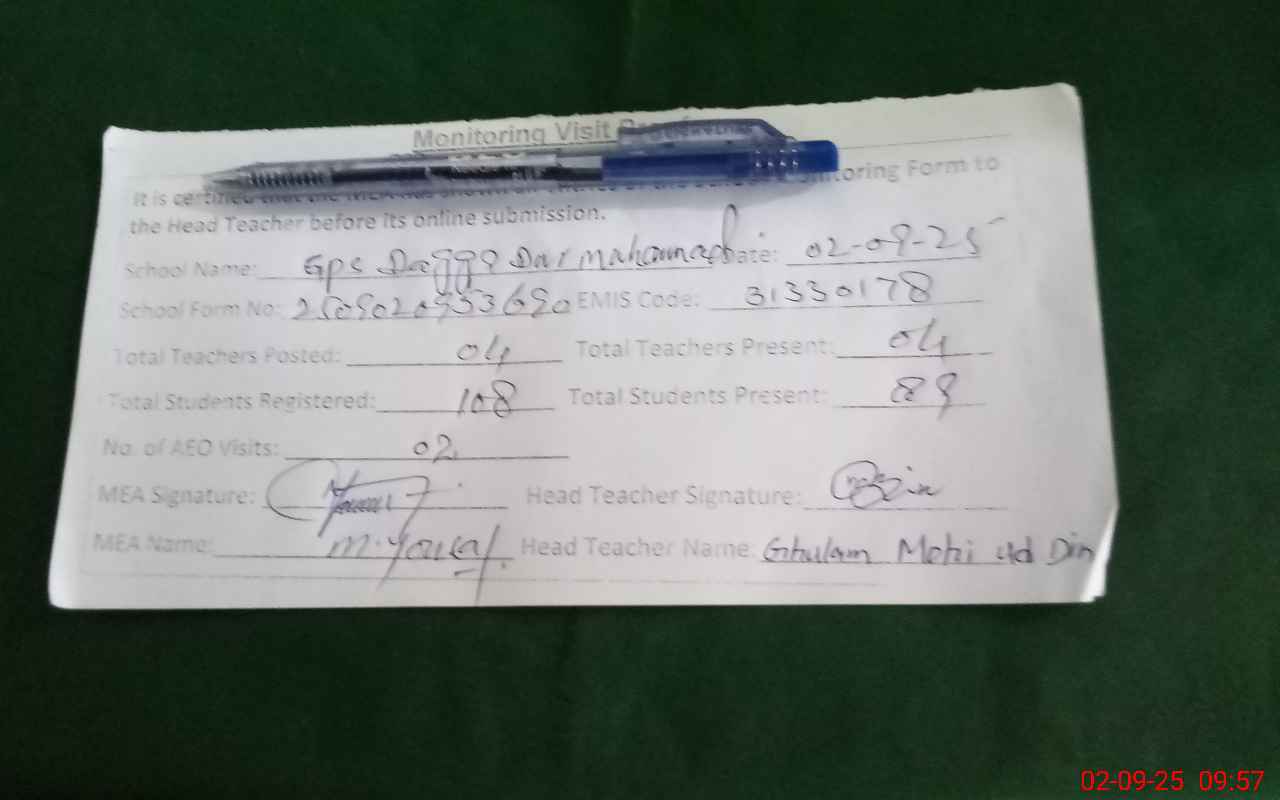 Monitoring Visit
It is certified that the MEA has shown all entries of the School Monitoring Form to
the Head Teacher before its online submission.
School Name: GPS Dagga Dar mahammad Date: 02-09-25
School Form No: EMIS Code: 31330178
Total Teachers Posted: 04 Total Teachers Present: 04
Total Students Registered: 108 Total Students Present: 89
No. of AEO Visits: 02
MEA Signature: Head Teacher Signature:
MEA Name: M. Yousaf Head Teacher Name: Ghulam Mohi ud Din
02-09-25 09:57